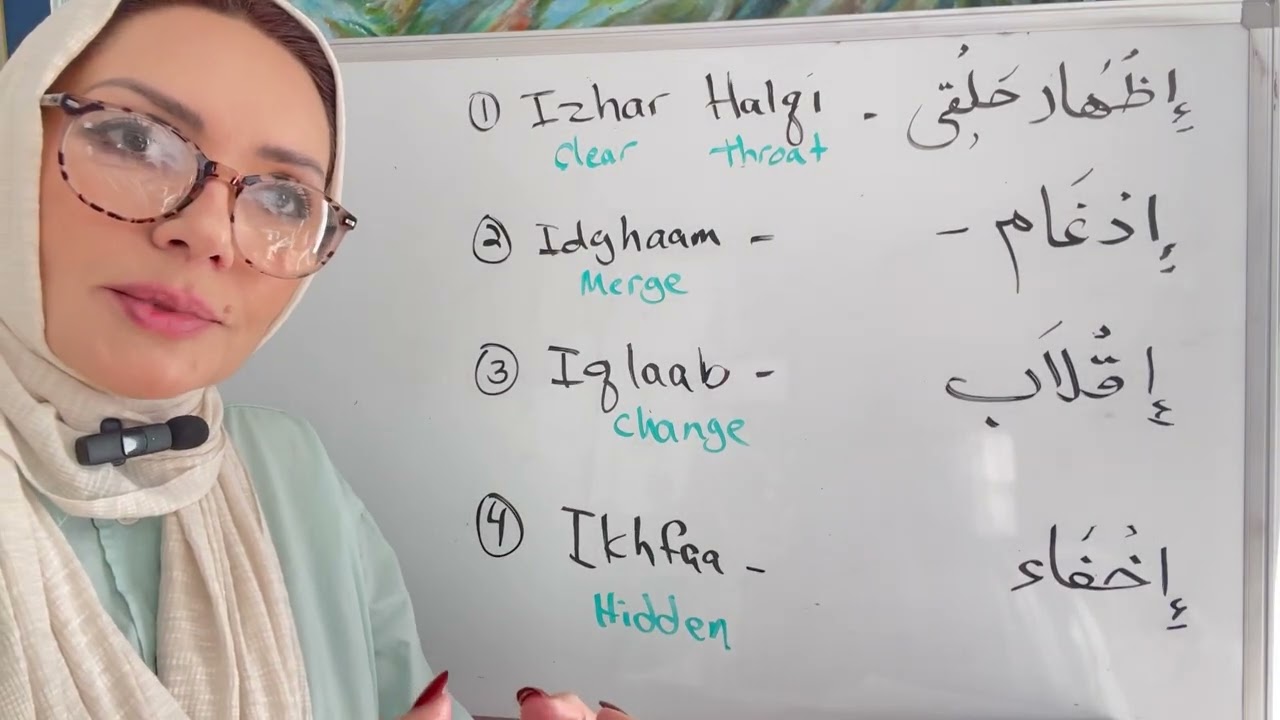 ① Izhar Halqi - إِظْهَار حَلْقِي
clear throat
② Idghaam - - إِدْغَام
Merge
③ Iqlaab - إِقْلَاب
change
④ Ikhfaa - إِخْفَاء
Hidden